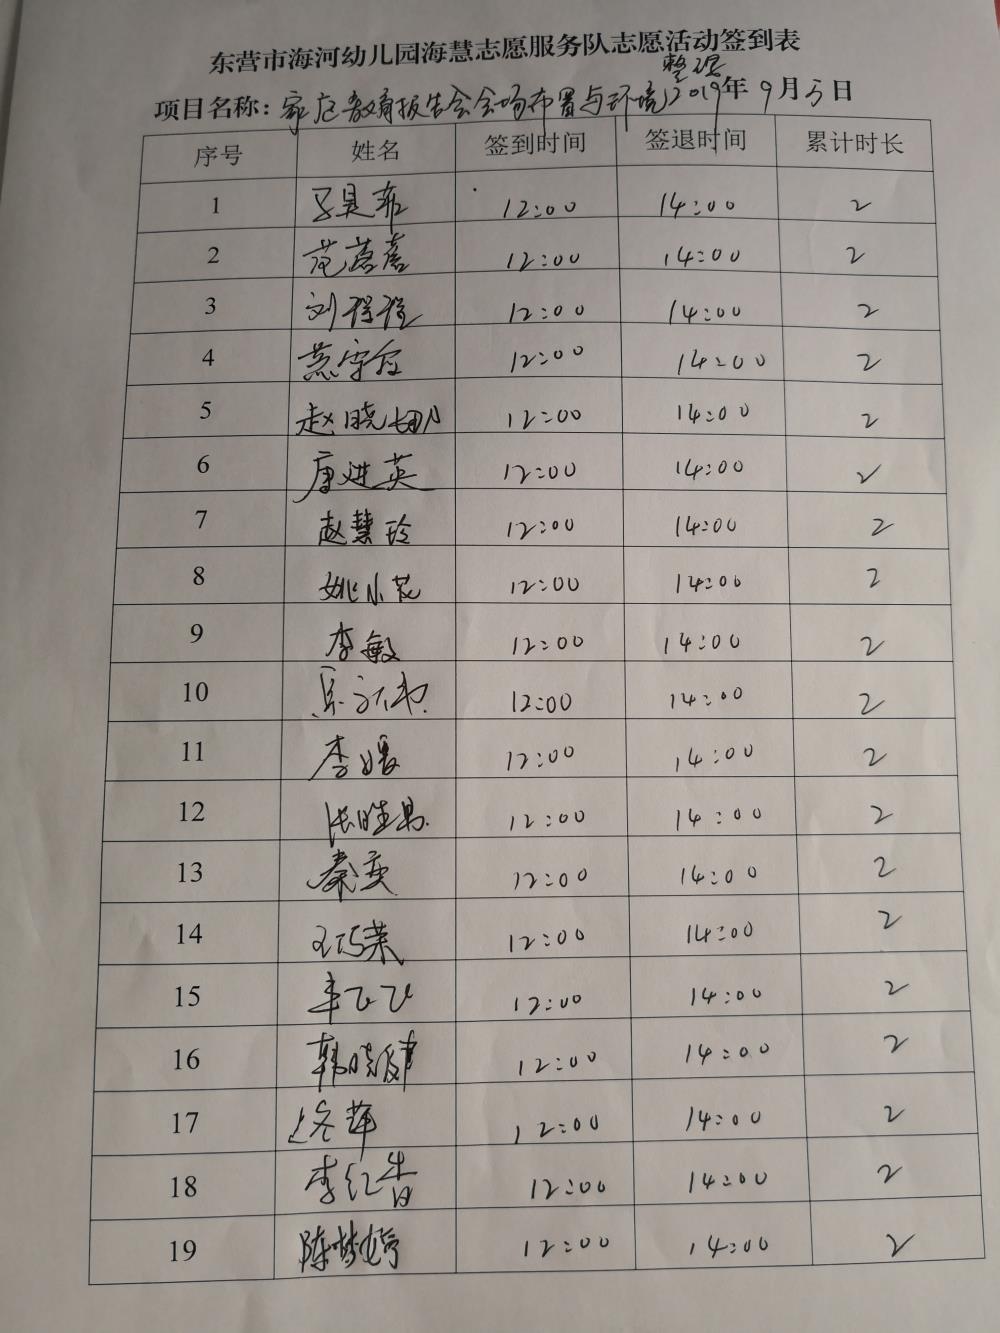 东营市海河幼儿园海慧志愿服务队志愿活动签到表
整理
项目名称：家庭教育报告会会场布置与环境 2019年9月5日
序号 姓名 签到时间 签退时间 累计时长
1 12:00 14:00 2
2 范蓓蓓 12:00 14:00 2
3 刘 12:00 14:00 2
4 12:00 14:00 2
5 赵晓 12:00 14:00 2
6 唐进英 12:00 14:00 2
7 赵慧玲 12:00 14:00 2
8 姚小花 12:00 14:00 2
9 李敏 12:00 14:00 2
10 12:00 14:00 2
11 李媛 12:00 14:00 2
12 张 12:00 14:00 2
13 秦英 12:00 14:00 2
14 王巧荣 12:00 14:00 2
15 李飞飞 12:00 14:00 2
16 韩晓 12:00 14:00 2
17 12:00 14:00 2
18 李红香 12:00 14:00 2
19 陈梦婷 12:00 14:00 2